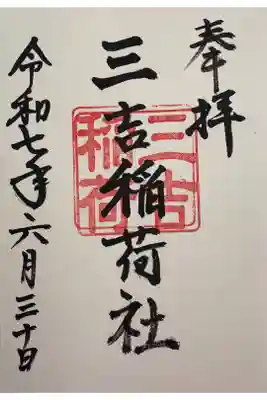 奉拝
三吉稲荷社
三吉稲荷
令和七年六月三十日